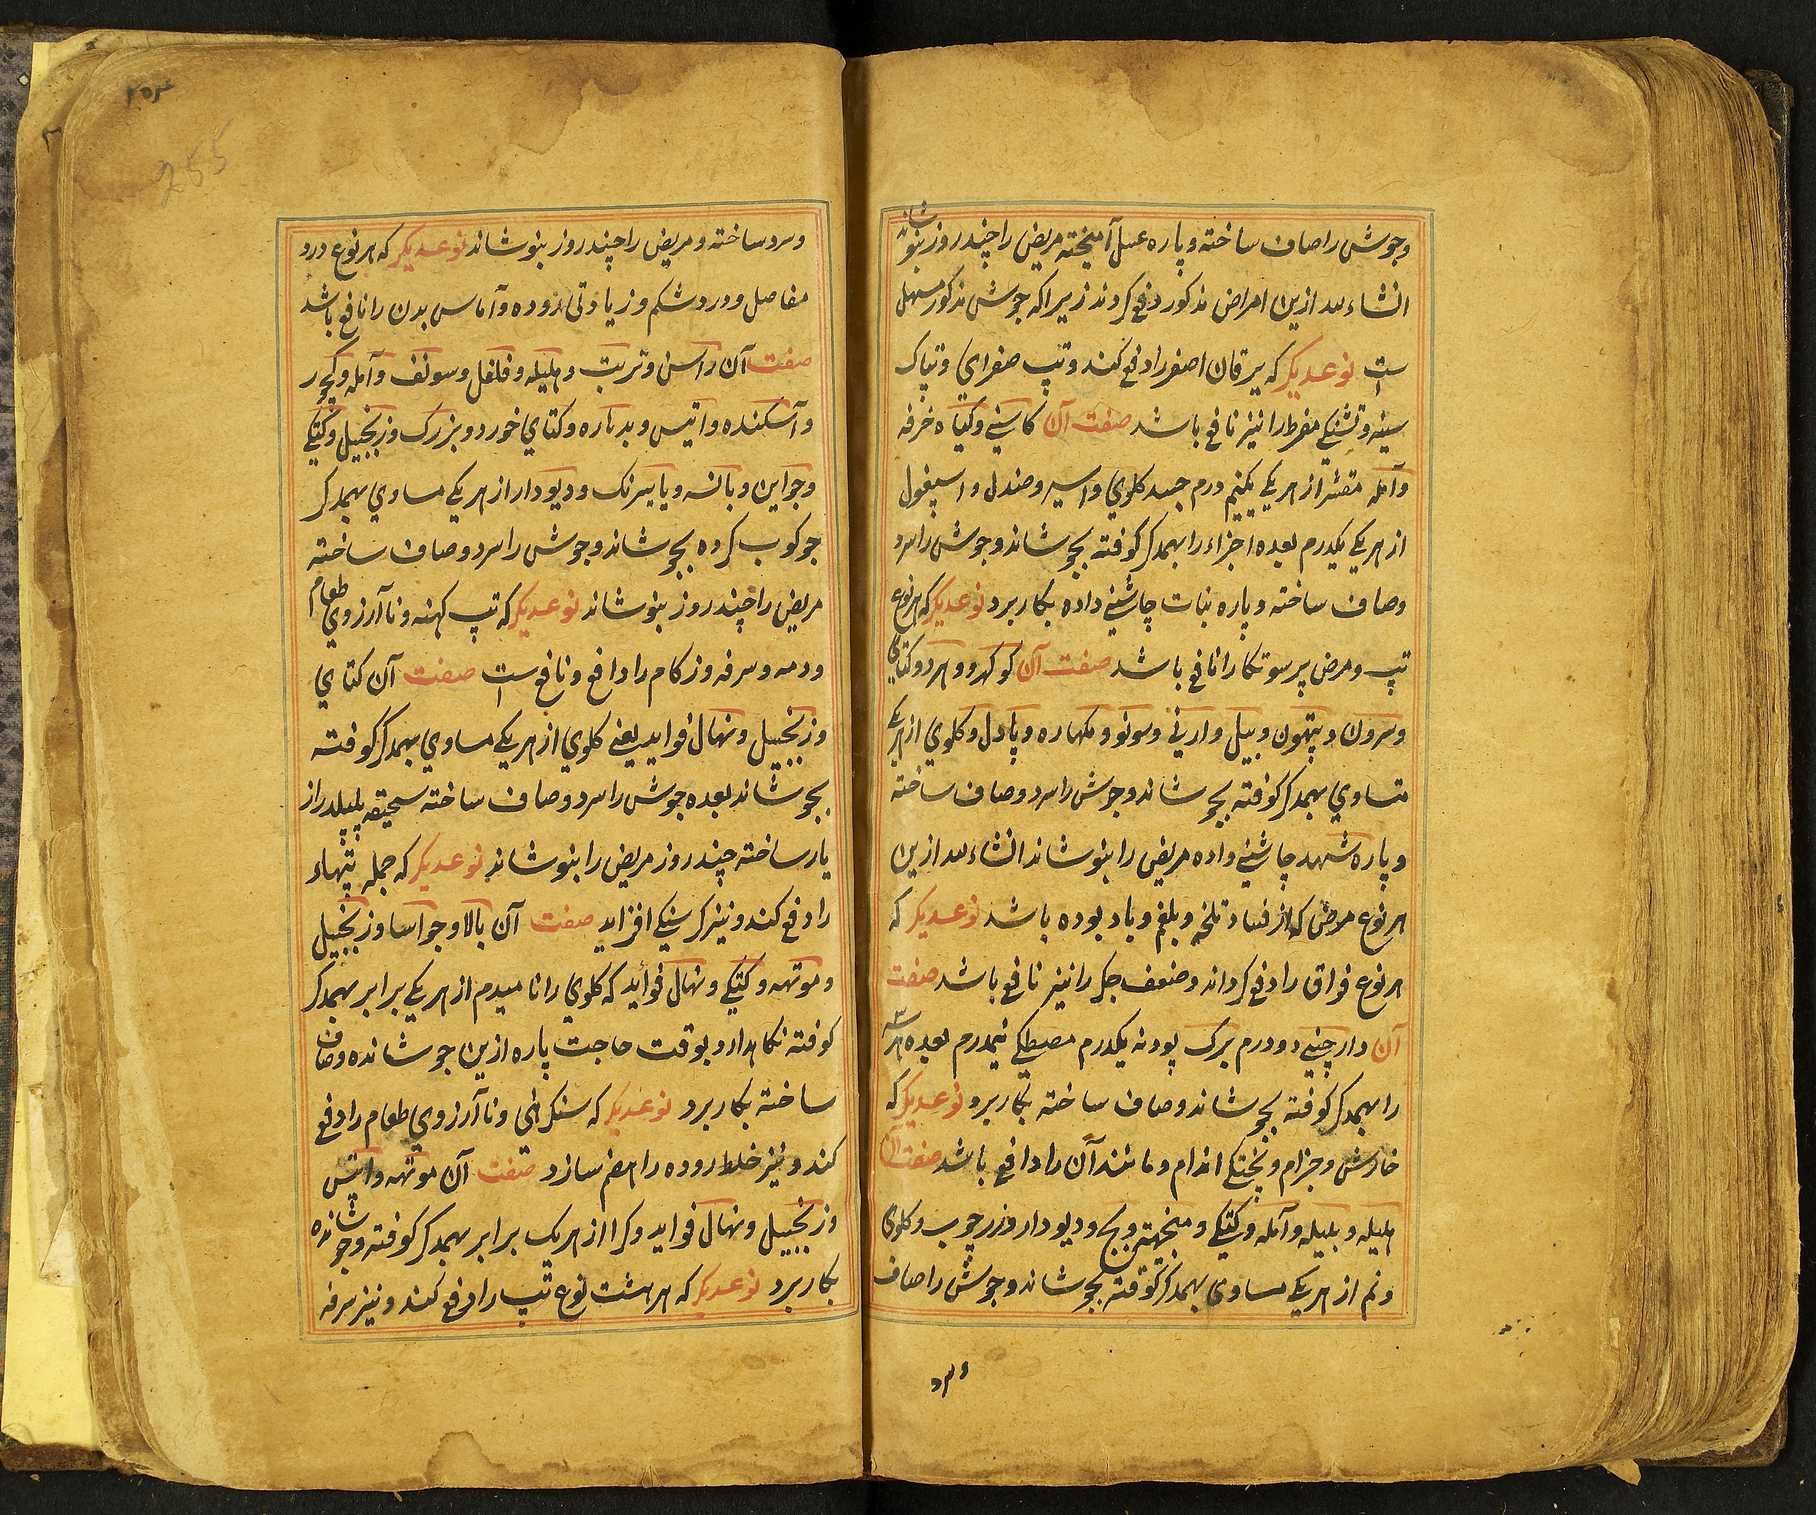 وجوش را صاف ساخته و پاره عسل آمیخته مریض را چند روز بنوشانند
انشاءلله ازین امراض مذکور دفع کردند زیرا که جوش مذکور مسهل
است نوعدیکر که یرقان اصفر را دفع کند و تپ صفرای و تپاک
سینه و تشنکی مفرط را نیز نافع باشد صفت آن کاسنی و کیاه خرفه
و آمله مقشر از هر یکی یکنیم درم جسد کلوی و اسیر و صندل و اسپغول
از هر یکی یکدرم بعده اجزاء را بهمدکر کوفته بجوشاند و جوش را سرد
و صاف ساخته و پاره نبات چاشنی داده بکار برد نوعدیکر که هر نوع
تپ و مرض پرسوتکا را نافع باشد صفت آن کوکهرو و هر دو کتای
و سرون و پتهون و بیل و ارنی و سونو و مکهاره و پادل و کلوی از هر یکی
متساوی بهمدکر کوفته بجوشاند و جوش را سرد و صاف ساخته
و پاره شهد چاشنی داده مریض را بنوشاند انشاءلله ازین
هر نوع مرض که از فساد تلخه و بلغم و باد بوده باشد نوعدیکر که
هر نوع فواق را دفع کرداند و ضعف جکر را نیز نافع باشد صفت
آن دارچینی دو درم برک پودنه یکدرم مصطکی نیمدرم بعده هر سه
را بهمدکر کوفته بجوشاند و صاف ساخته بکار برد نوعدیکر که
خارش و جزام و پختکی اندام و مانند آن را دافع باشد صفت آن
هلیله و بلیله و آمله و کتکی و منجهته و بج و دیودار و زرچوب و کلوی
و نم از هر یکی مساوی بهمدکر کوفته بجوشاند و جوش را صاف
و سرد ساخته و مریض را چند روز بنوشاند نوعدیکر که هر نوع درد
مفاصل و درد شکم و زیادتی روده و آماس بدن را نافع باشد
صفت آن راسن و تربت و هلیله و فلفل و سونف و آمله و کچور
و آسکنده و اتیس و بدهاره و کتای خورد و بزرک و زنجبیل و کتکی
و جواین و بانسه و یابیرنک و دیودار از هر یکی مساوی بهمدکر
جوکوب کرده بجوشاند و جوش را سرد و صاف ساخته
مریض را چند روز بنوشاند نوعدیکر که تپ کهنه و ناآرزوی طعام
و دمه و سرفه و زکام را دافع و نافع است صفت آن کتای
و زنجبیل و نهال فواید یعنی کلوی از هر یکی مساوی بهمدکر کوفته
بجوشاند بعده جوش را سرد و صاف ساخته سحیقه پلپلدراز
یار ساخته چند روز مریض را بنوشاند نوعدیکر که جمله تپهاء
را دفع کند و نیز کرسنکی افزاید صفت آن بالا و جواسا و زنجبیل
و موتهه و کتکی و نهال فواید که کلوی را نامیدم از هر یکی برابر بهمدکر
کوفته نکاهدارد و بوقت حاجت پاره ازین جوشانده و صاف
ساخته بکار برد نوعدیکر که سنکرهنی و ناآرزوی طعام را دفع
کند و نیز خلط روده را هضم سازد صفت آن موتهه و اتیس
و زنجبیل و نهال فواید و کرا از هر یک برابر بهمدکر کوفته و جوشانده
بکار برد نوعدیکر که هر هشت نوع تپ را دفع کند و نیز سرفه
255